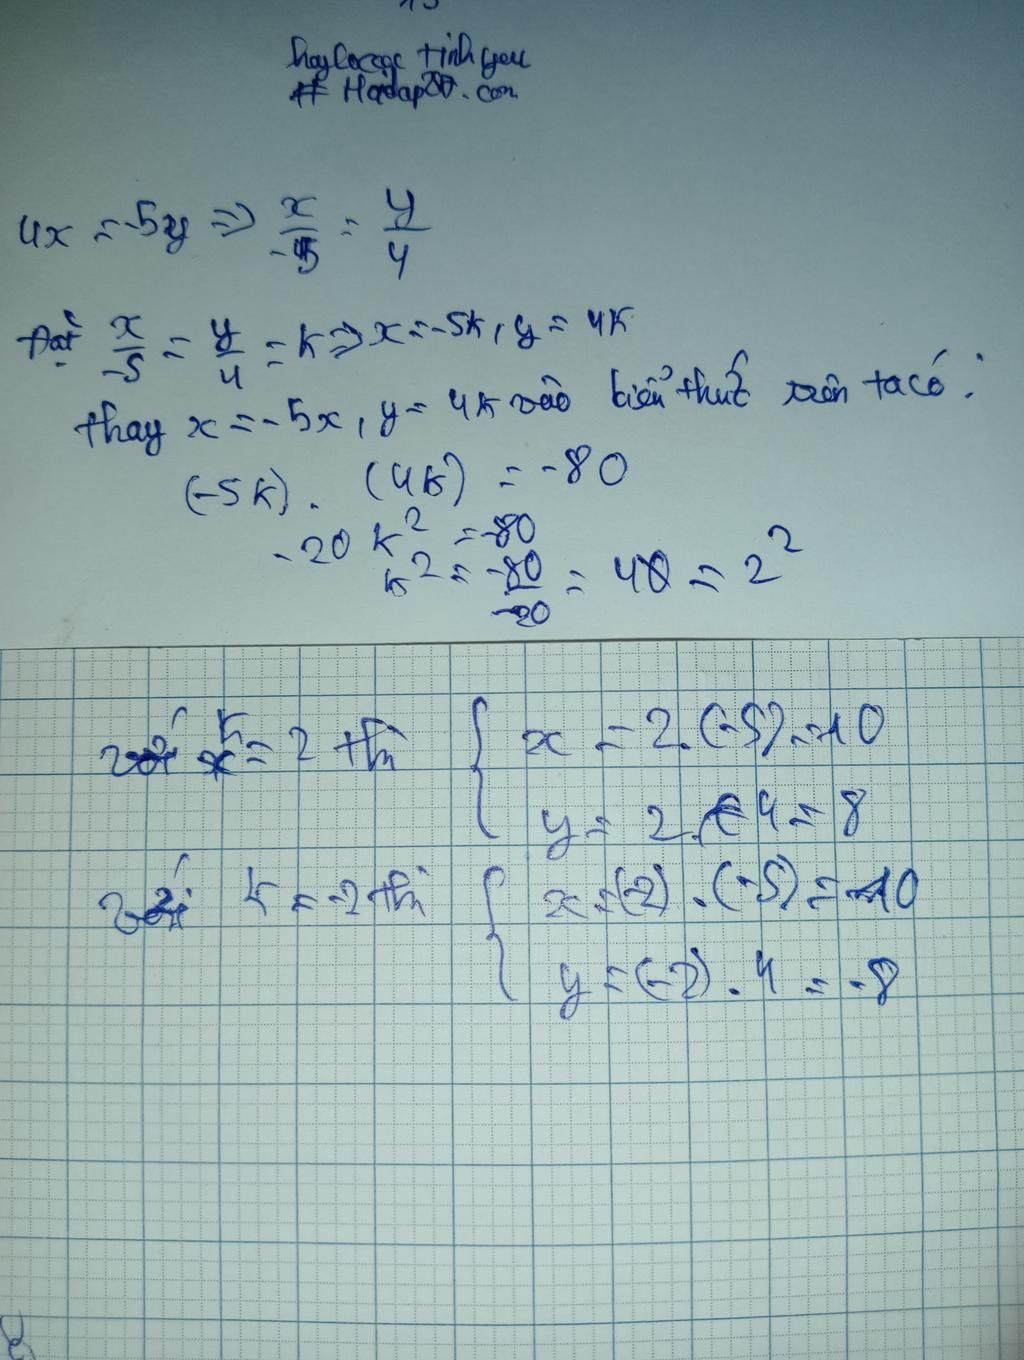 tình yêu
4x = -5y => x/-5 = y/4
Đặt x/-5 = y/4 = k => x = -5k, y = 4k
thay x = -5x, y = 4k vào biểu thức trên ta có:
(-5k). (4k) = -80
-20 k² = -80
k² = -80/-20 = 4 = 2²
với k = 2 thì { x = 2.(-5) = -10
y = 2.4 = 8
với k = -2 thì { x = (-2).(-5) = 10
y = (-2).4 = -8